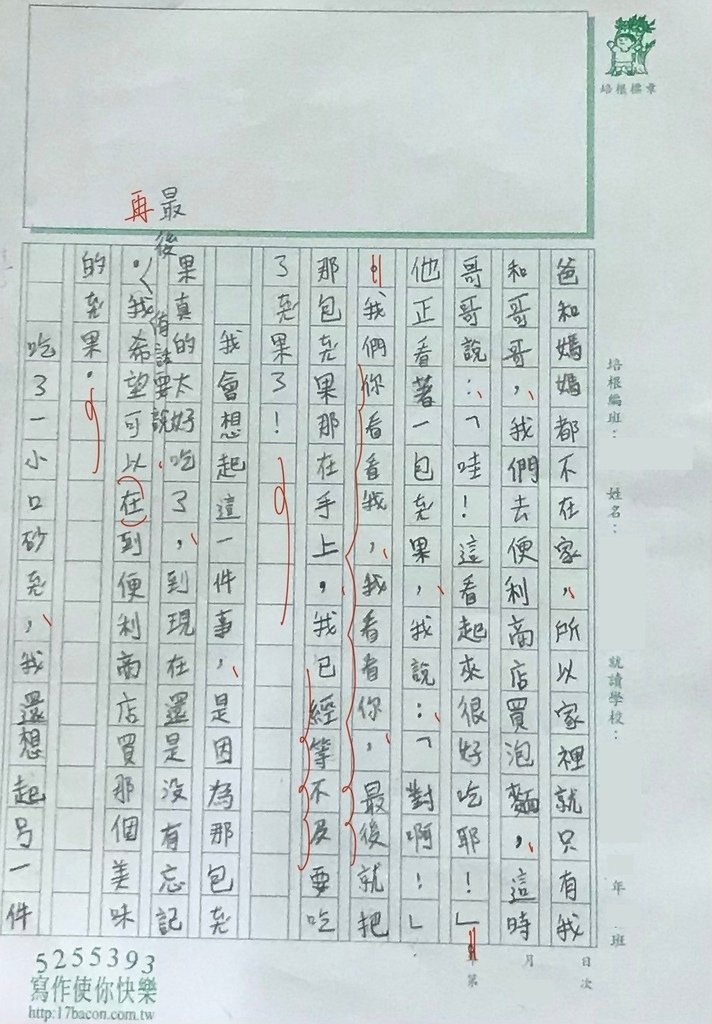 培根標章
培根編班：
姓名：
就讀學校：
年 班
月 日
第 次
爸和媽媽都不在家，所以家裡就只有我
和哥哥，我們去便利商店買泡麵，這時
哥哥說：「哇！這看起來很好吃耶！」
他正看著一包堯果，我說：「對啊！」
我們你看看我，我看看你，最後就把
那包堯果那在手上，我已經等不及要吃
了堯果了！
我會想起這一件事，是因為那包堯
果真的太好吃了，到現在還是沒有忘記
最後
有話要說
。我希望可以在到便利商店買那個美味
再
的堯果。
吃了一小口砂堯，我還想起另一件
5255393
寫作使你快樂
http://17bacon.com.tw